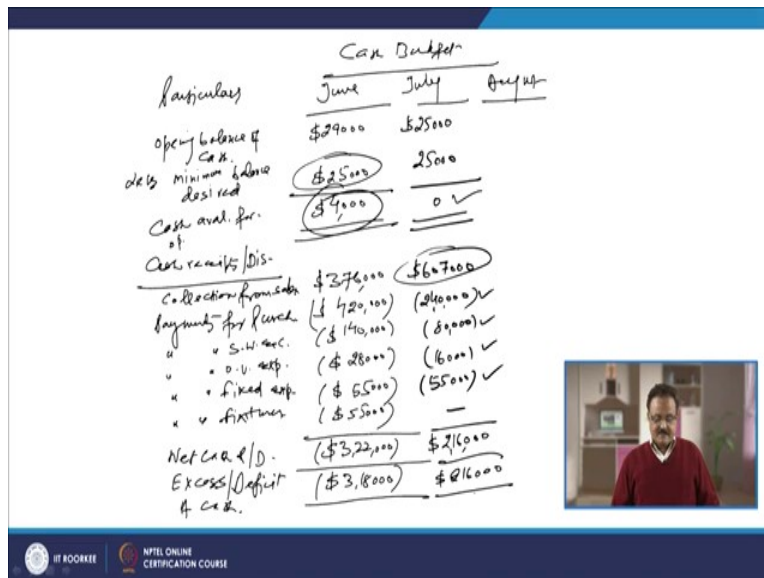 Cash Budget
Particulars June July August
Opening balance of cash. $29000 $25000
Less minimum balance desired $25000 25000
Cash aval. for op. $4,000 0 ✓
Cash receipts/Dis-
Collection from sales $376,000 $607000
Payments for Purch ($ 420,000) (240,000) ✓
" " S.W. etc. ($ 140,000) (80,000) ✓
" " o.v. exp. ($ 28000) (16000) ✓
" " fixed exp. ($ 55000) (55000) ✓
" " fixtures ($ 55000) —
Net Cash R/D. ($3,22,000) $216,000
Excess/Deficit of cash. ($3,18000) $216000
IIT ROORKEE NPTEL ONLINE
CERTIFICATION COURSE